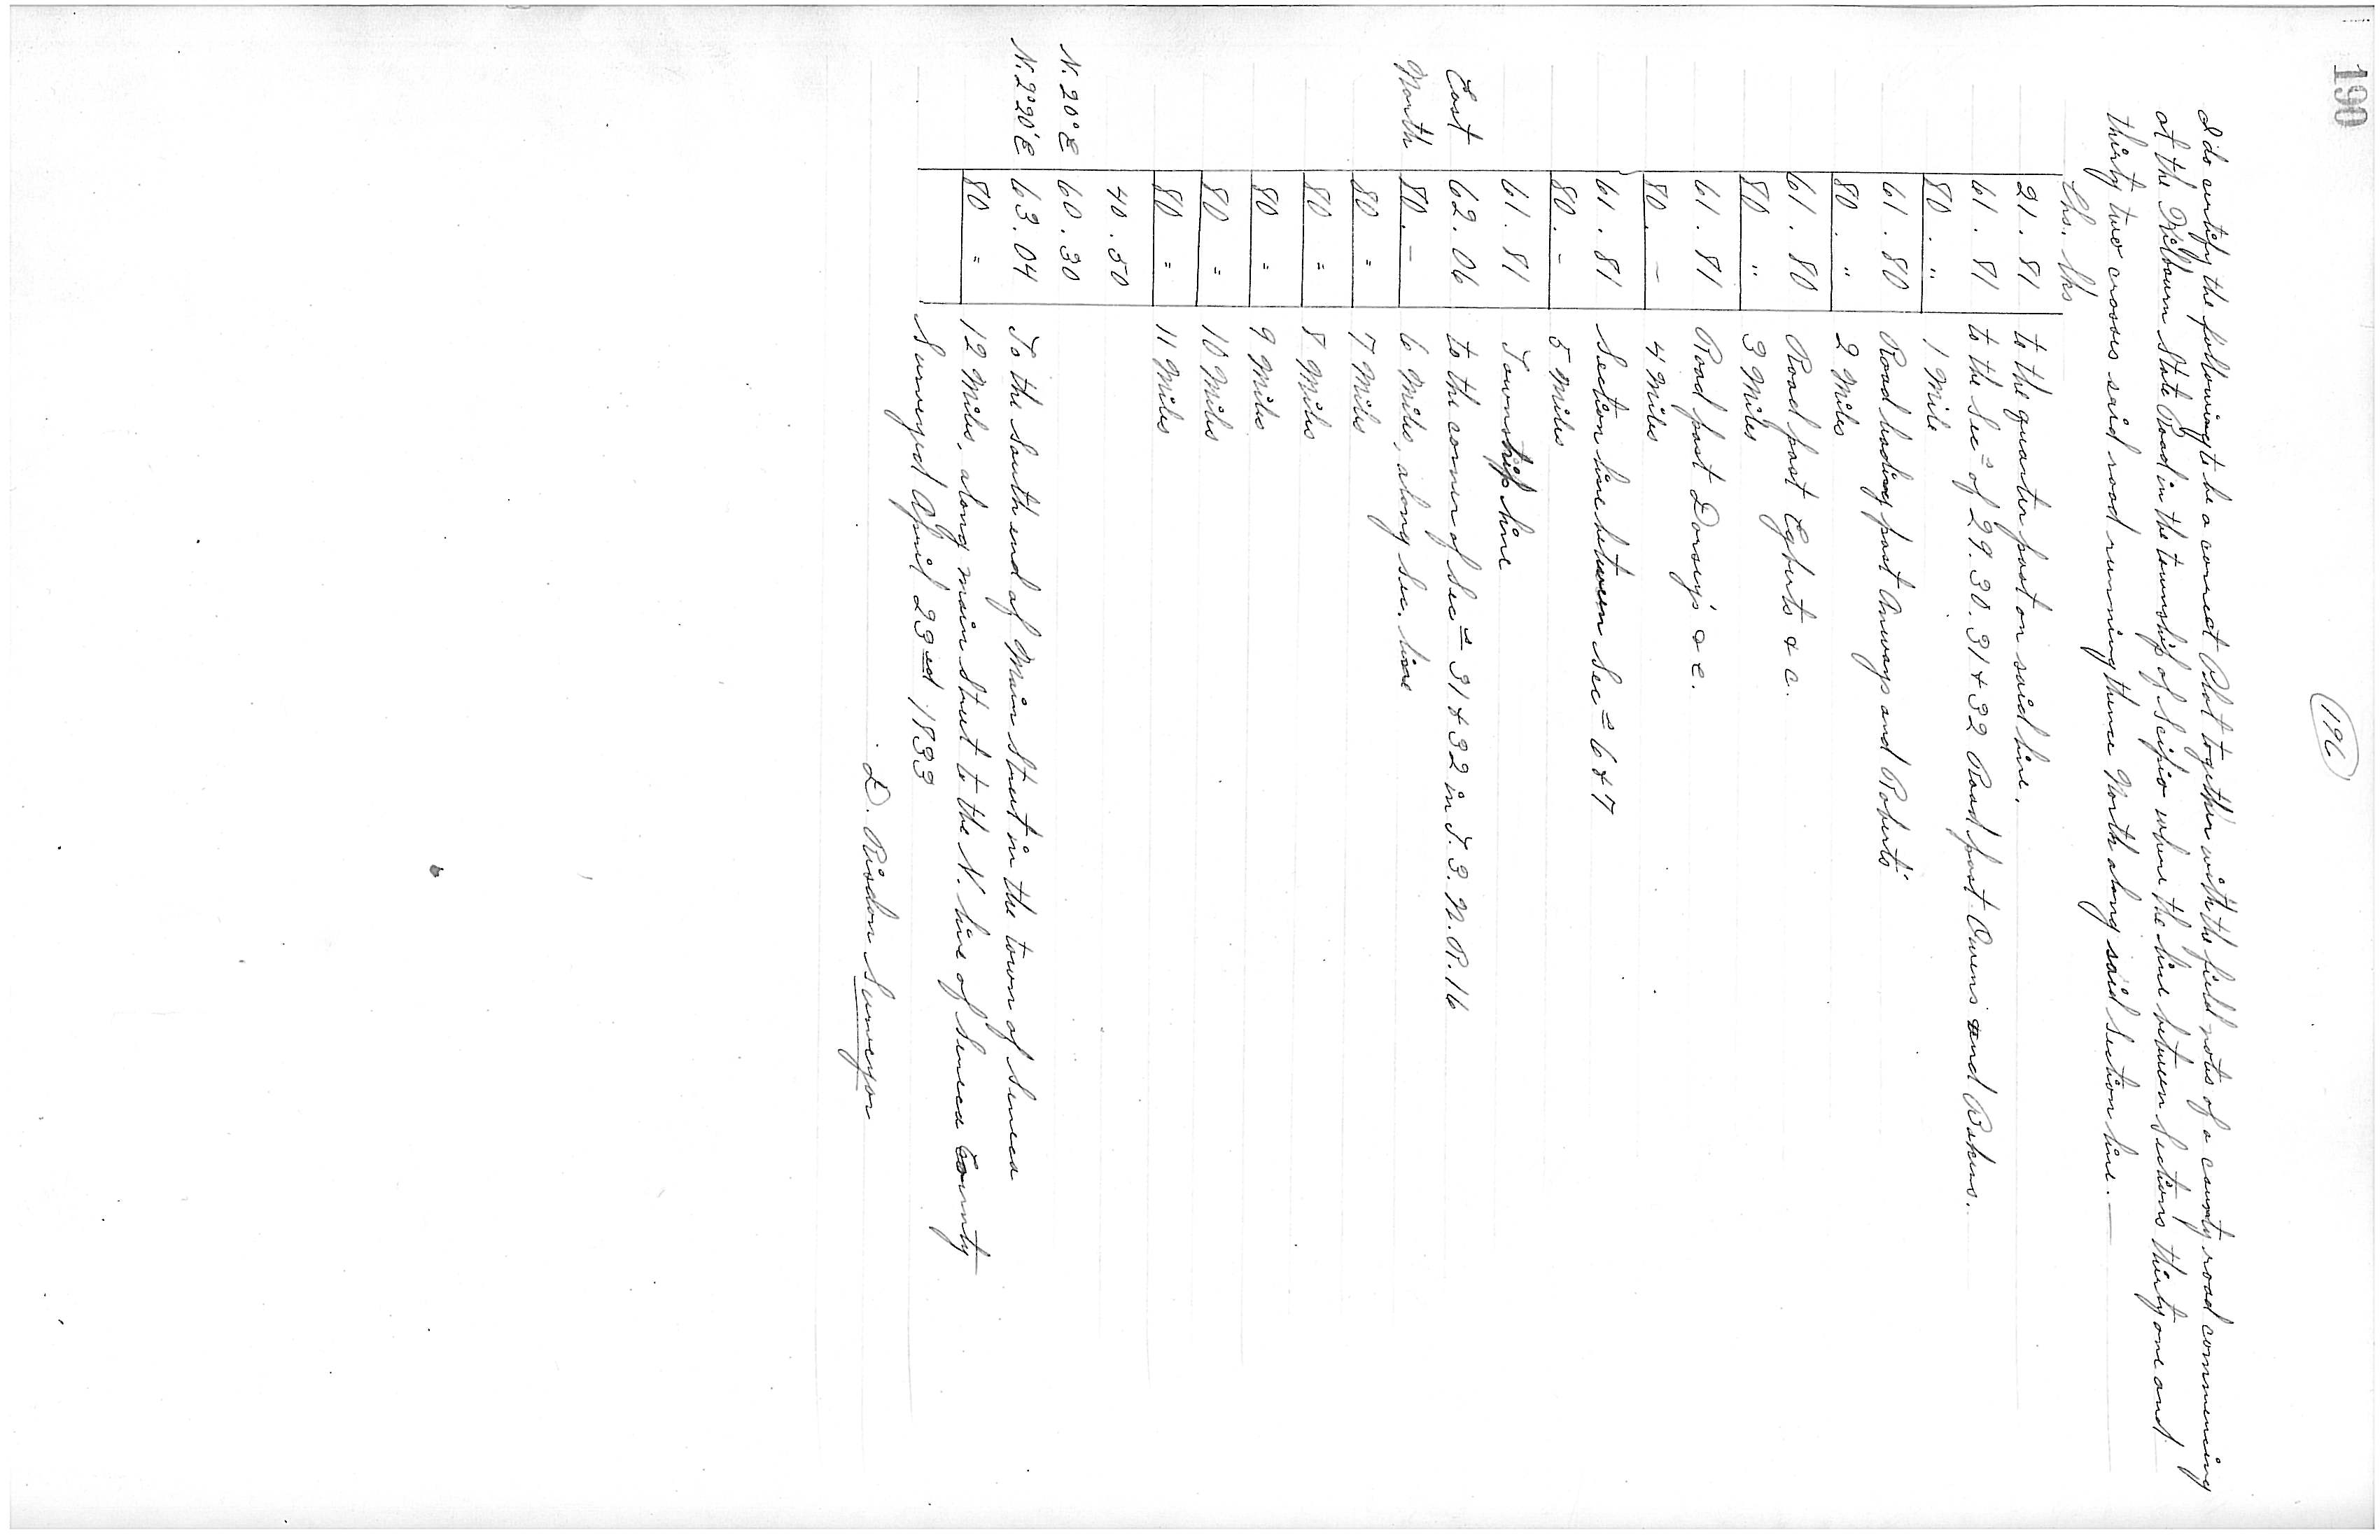 190
196
I do certify the following to be a correct Plat together with the field notes of a county road commencing
at the Kilbourn State Road in the township of Scipio where the line between Sections thirty one and
thirty two crosses said road running thence North along said Section line. —
Chs. lks
21 . 81 to the quarter post on said line.
61 . 81 to the Secs of 29. 30. 31 & 32 Road past Owens and Bakers.
80 . " 1 Mile
61 . 80 Road leading past Anways and Roberts
80 . " 2 Miles
61 . 80 Road past Egberts & c.
80 " 3 Miles
61 . 81 Road past Dorsey's & c.
80 . — 4 Miles
61 . 81 Section line between Secs 6 & 7
80 . – 5 Miles
61 . 81 Township line
East 62 . 06 to the corner of Secs 31 & 32 in T. 3. N. R. 16
North 80 . — 6 Miles, along Sec. line
80 = 7 Miles
80 = 8 Miles
80 = 9 Miles
80 = 10 Miles
80 = 11 Miles
40 . 50
N. 20° E 60 . 30
N. 2° 20' E 63 . 04 To the South end of Main Street in the town of Seneca
80 = 12 Miles, along main Street to the N. line of Seneca County
Surveyed April 23rd 1833
D. Risdon Surveyor